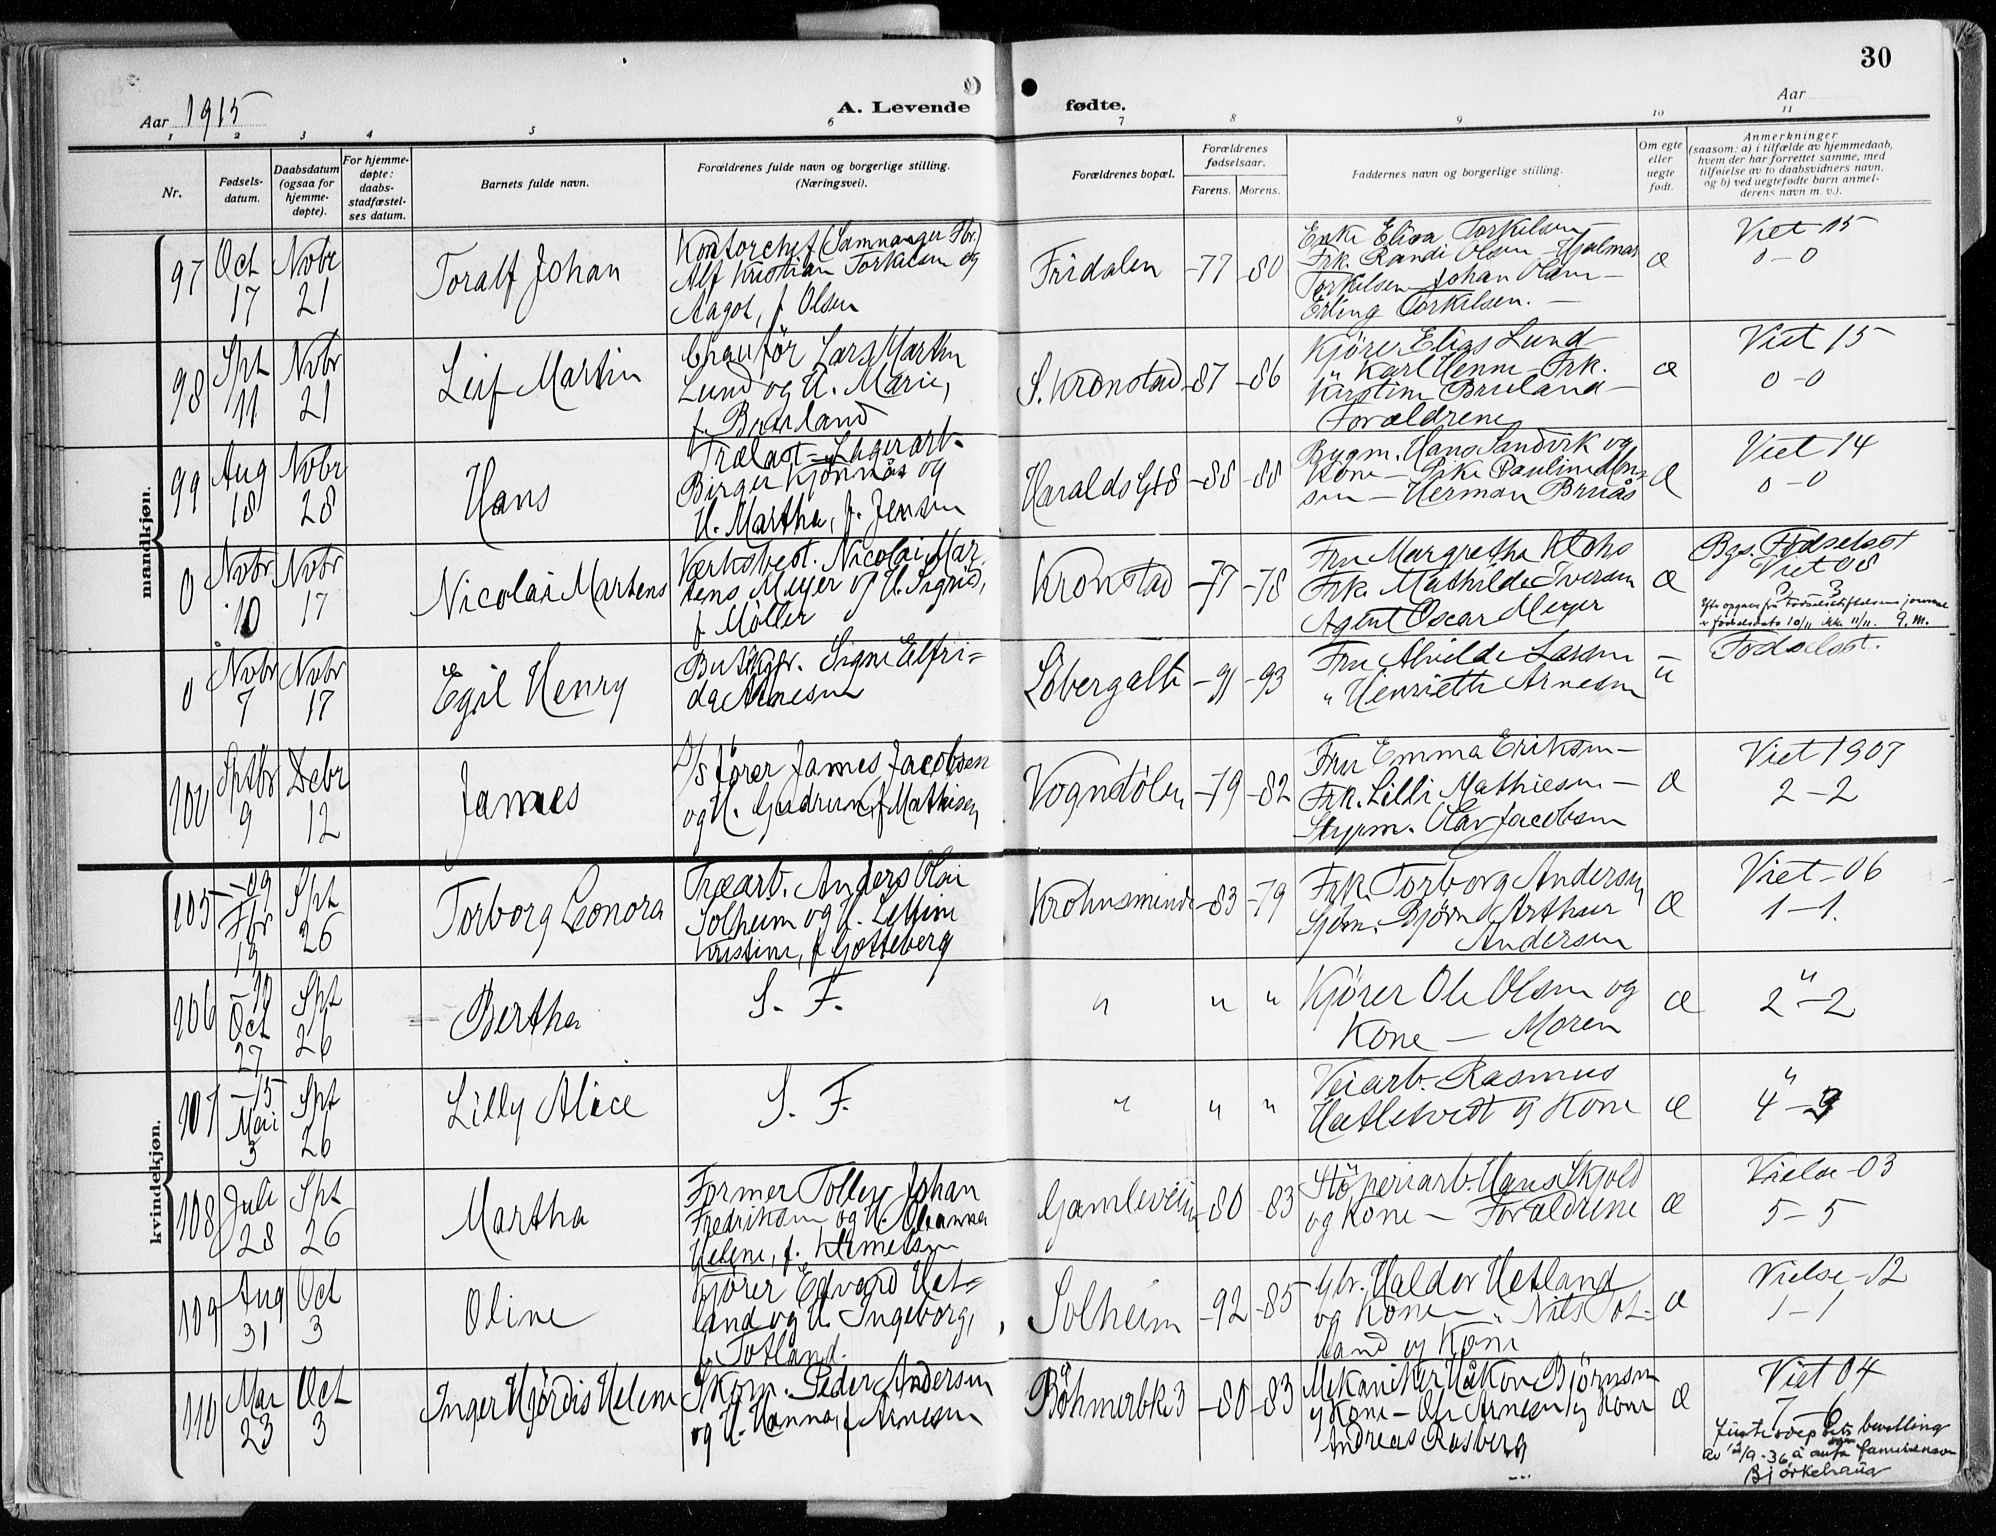 30
Aar 1915
A. Levende fødte.
Aar
1 2 3 4 5 6 7 8 9 10 11
Nr.
Fødsels-
datum.
Daabsdatum
(ogsaa for
hjemme-
døpte).
For hjemme-
døpte:
daabs-
stadfæstel-
ses datum.
Barnets fulde navn.
Forældrenes fulde navn og borgerlige stilling.
(Næringsvei).
Forældrenes bopæl.
Forældrenes
fødselsaar.
Farens. Morens.
Faddernes navn og borgerlige stilling.
Om egte
eller
uegte
født.
Anmerkninger
(saasom: a) i tilfælde av hjemmedaab,
hvem der har forrettet samme, med
tilføielse av to daabsvidners navn,
og b) ved uegtefødte barn anmel-
derens navn m. v.).
mandkjøn.
97
Oct
17
Nobr
21
Toralf Johan
Kontorchef (Samnanger Fbr.)
Alf Kristian Torkilsen og
Aagot, f Olsen
Fridalen
-77 -80
Enke Elisa Torkilsen
Frk. Randi Olsen - Hjalmar
Torkilsen - Johan Olsen -
Erling Torkilsen. -
Æ
Viet 15
0-0
98
Spt
11
Nobr
21
Leif Martin
Chauffør Lars Martin
Lund og H. Marie,
f. Bruland
S. Kronstad
-87 -86
Kjører Elias Lund -
" Karl Henne - Frk.
Kirstine Bruland -
Forældrene
Æ
Viet 15
0-0
99
Aug
18
Nobr
28
Hans
Trælast-Lagerarb.
Birger Kjønnås og
H. Martha, f. Jensen
Haralds Gt 8
-88 -88
Bygm. Hans Sandvik og
Kone - Frk. Pauline
sen - Herman Bruås
Æ
Viet 14
0-0
0
Nobr
10
Nobr
17
Nicolai Martens
Værkstbest. Nicolai Mar-
tens Meyer og H. Sigrid,
f Møller
Kronstad
-77 -78
Fru Margretha
Frk. Mathilde Iversen
Agent Oscar Meyer
Æ
Bgs. Fødselsst
Viet 08
3
Efter opgave fra Fødselsstiftelsens journal
er fødselsdato 10/11 ikke 11/11. G.M.
0
Nobr
7
Nobr
17
Egil Henry
Butikjfr. Signe Elfri-
da Arnesen
Løbergalt
-91 -93
Fru Alvilde Larsen -
" Henriette Arnesen
u
Fødselsst.
100
Sptbr
9
Debr
12
James
D/s fører James Jacobsen
og H. Gudrun, f Mathisen
Vogndølen
-79 -82
Fru Emma Eriksen -
Frk. Lilli Mathiesen -
Styrm. Olav Jacobsen
Æ
Viet 1907
2-2
kvindekjøn.
105
-09
Fbr
19
Spt
26
Torborg Leonora
Træarb. Anders Olai
Solheim og H.
Kristine, f Gotteberg
Krohnsminde
-83 -79
Frk. Torborg Andersen
Sjøm. Bjørn Arthur
Andersen
Æ
Viet -06
1-1.
106
10
Oct
27
Spt
26
Bertha
S. F.
"
" "
Kjører Ole Olsen og
Kone - Moren
Æ
"
2-2
107
-15
Mai
3
Spt
26
Lilly Alice
S. F.
"
" "
Veiarb. Rasmus
Hatletvedt og Kone
Æ
"
4-3
108
Juli
28
Spt
26
Martha
Former Tollev Johan
Fredriksen og H. Johanna
Helene, f. Klemetsen
Gamleveien
-80 -83
Støperiarb. Hans Skjold
og Kone - Forældrene
Æ
Vielse -03
5-5
109
Aug
31
Oct
3
Oline
Kjører Edvard Het-
land og H. Ingeborg,
f. Totland.
Solheim
-92 -85
Gbr. Haldor Hetland
og Kone - " Nils Tot-
land og Kone
Æ
Vielse -12
1-1
110
Mar
23
Oct
3
Inger Hjørdis Helene
Skom. Peder Andersen
og H. Hanna, f Arnesen
Bøhmerbk 3
-80 -83
Mekaniker Håkon Bjørnsen
og Kone - Ole Arnesen og Kone
Andreas Rosberg
Æ
Viet 04
7-6
Justisdep. bevilling
av 12/9-36, å anta familienavn
Bjørkehaug